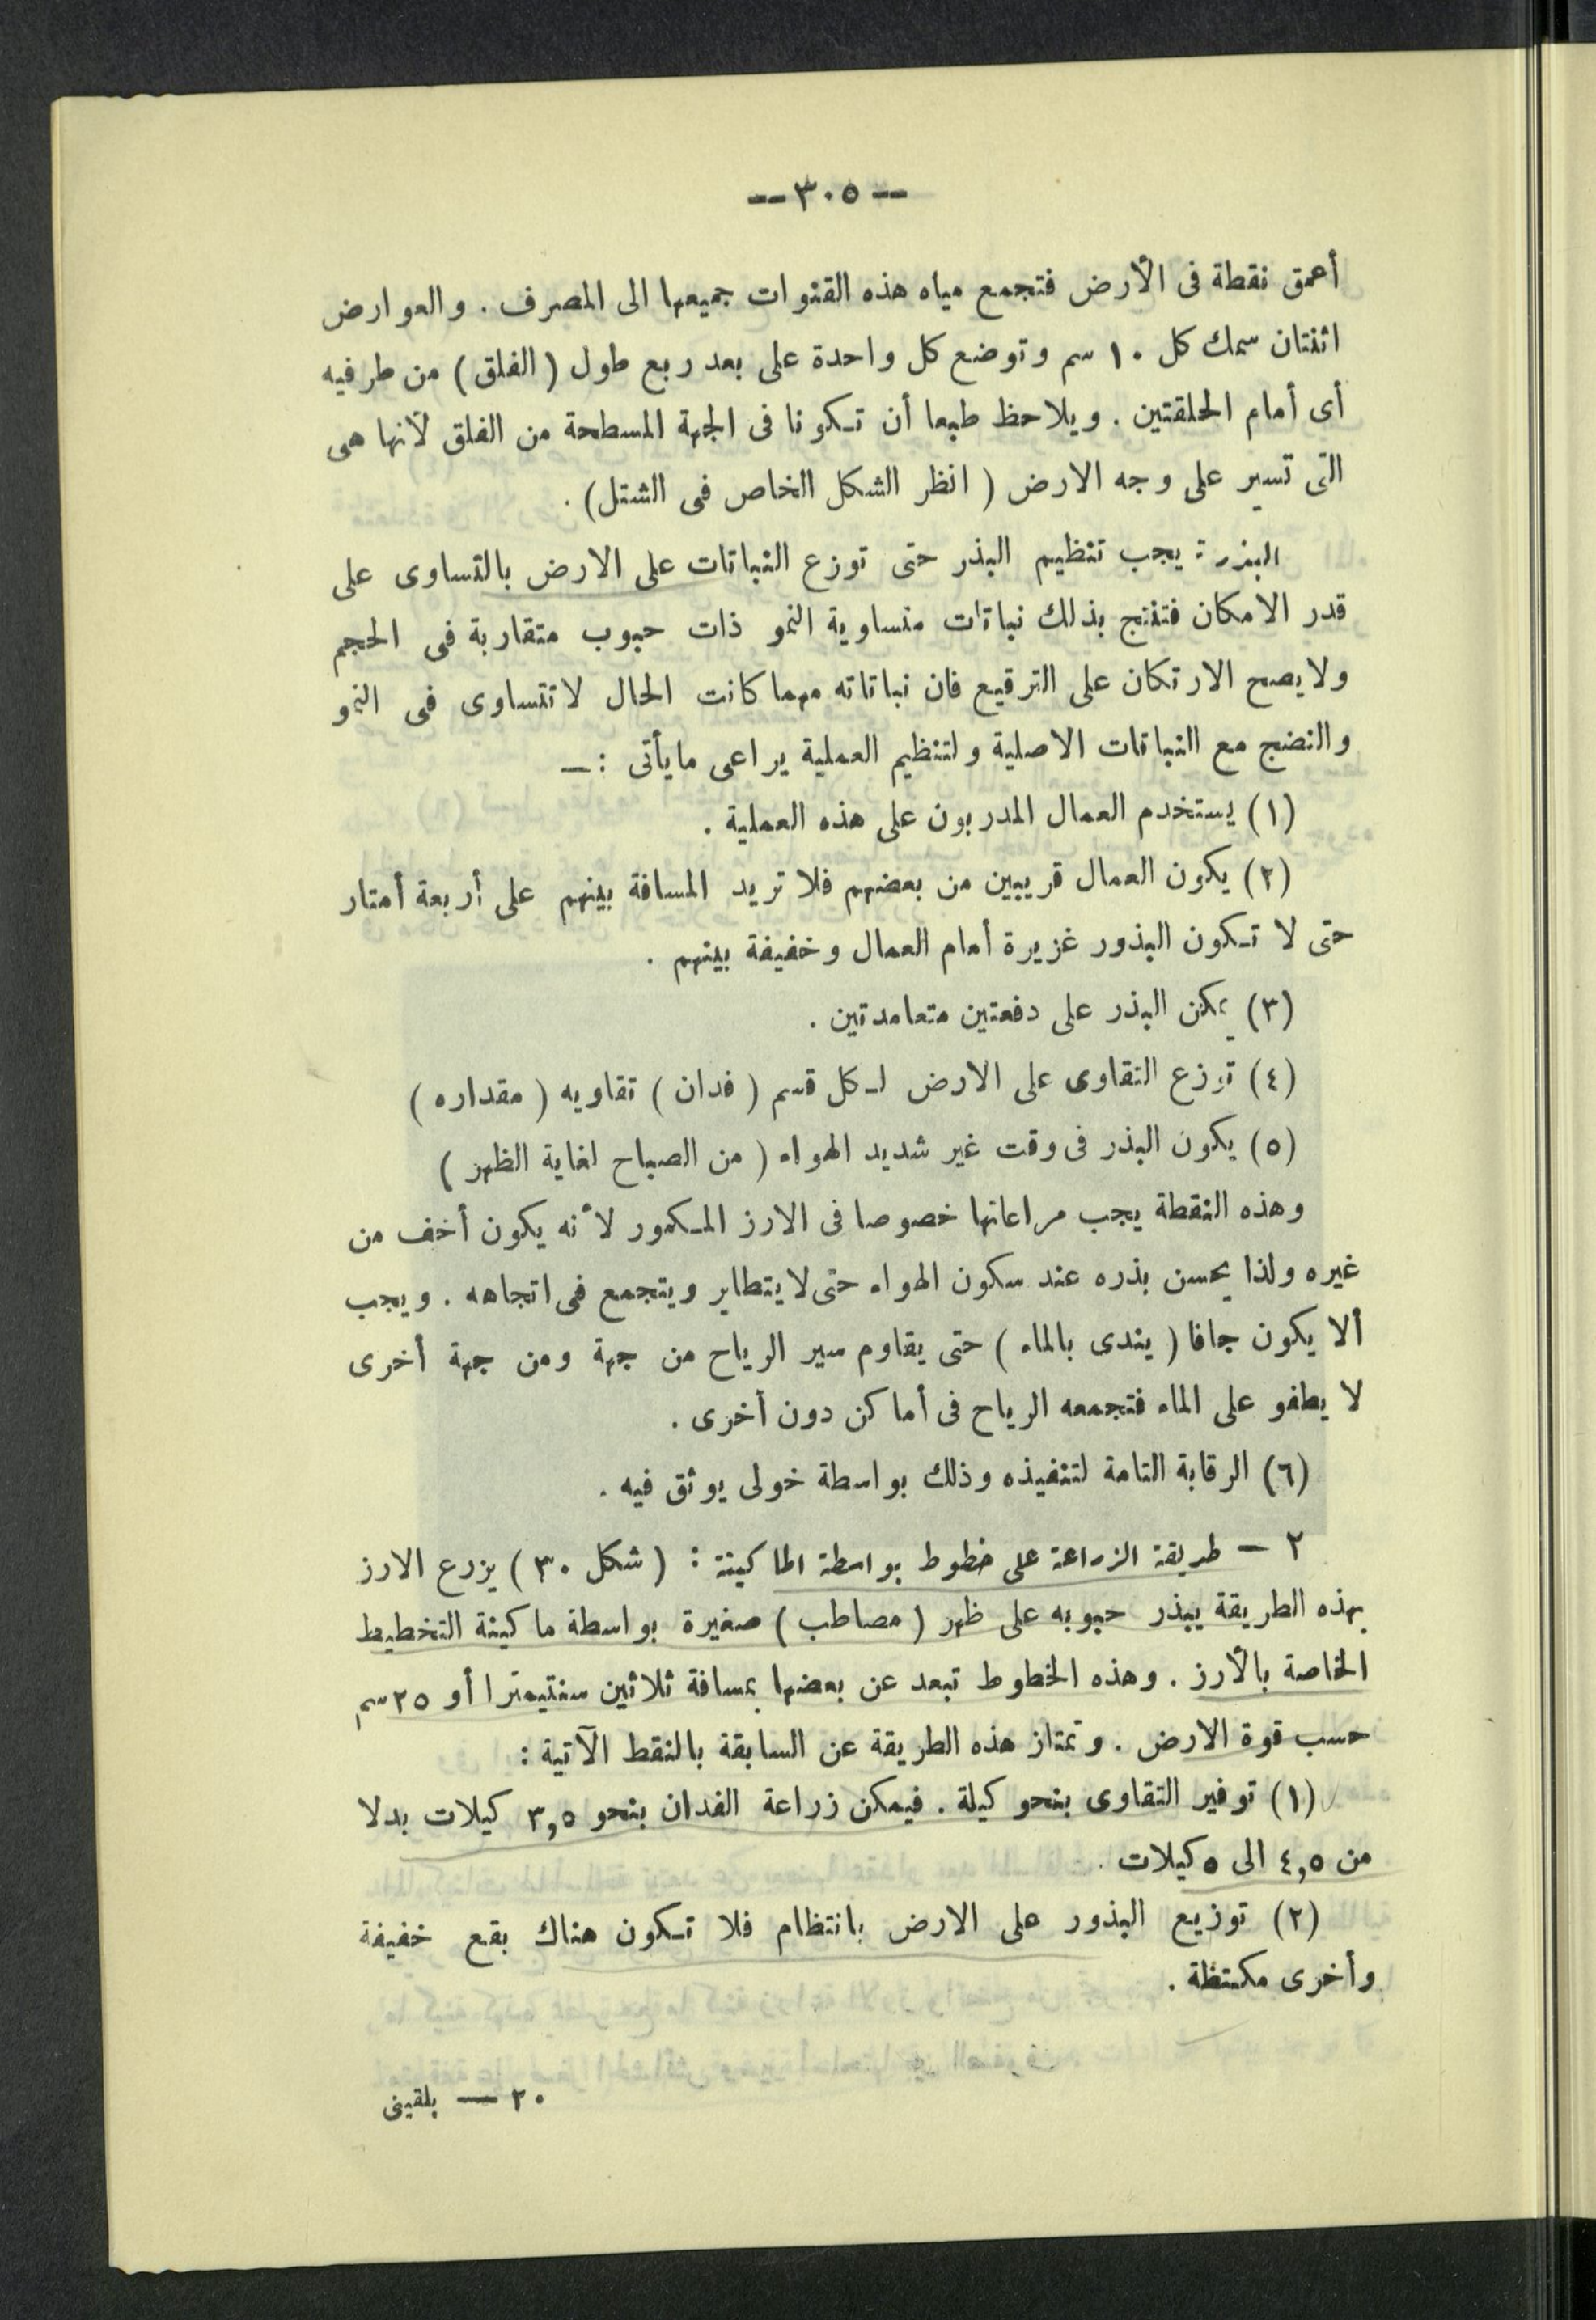 -- ٣٠٥ --
أعمق نقطة فى الأرض فتجمع مياه هذه القنوات جميعها الى المصرف . والعوارض
اثنتان سمك كل ١٠ سم وتوضع كل واحدة على بعد ربع طول ( الفلق ) من طرفيه
أى أمام الحلقتين . ويلاحظ طبعا أن تكونا فى الجهة المسطحة من الفلق لأنها هى
التى تسير على وجه الارض ( انظر الشكل الخاص فى الشتل ) .
البذر : يجب تنظيم البذر حتى توزع النباتات على الارض بالتساوى على
قدر الامكان فتنتج بذلك نباتات متساوية النمو ذات حبوب متقاربة فى الحجم
ولا يصح الارتكان على الترقيع فان نباتاته مهما كانت الحال لا تتساوى فى النمو
والنضج مع النباتات الاصلية ولتنظيم العملية يراعى ما يأتى : —
(١) يستخدم العمال المدربون على هذه العملية .
(٢) يكون العمال قريبين من بعضهم فلا تريد المسافة بينهم على أربعة أمتار
حتى لا تكون البذور غزيرة أمام العمال وخفيفة بينهم .
(٣) يمكن البذر على دفعتين متعامدتين .
(٤) توزع التقاوى على الارض لكل قسم ( فدان ) تقاويه ( مقداره )
(٥) يكون البذر فى وقت غير شديد الهواء ( من الصباح لغاية الظهر )
وهذه النقطة يجب مراعاتها خصوصا فى الارز المكمور لأنه يكون أخف من
غيره ولذا يحسن بذره عند سكون الهواء حتى لا يتطاير ويتجمع فى اتجاهه . ويجب
ألا يكون جافا ( يندى بالماء ) حتى يقاوم سير الرياح من جهة ومن جهة أخرى
لا يطفو على الماء فتجمعه الرياح فى أماكن دون أخرى .
(٦) الرقابة التامة لتنفيذه وذلك بواسطة خولى يوثق فيه .
٢ — طريقة الزراعة على خطوط بواسطة الماكينة : ( شكل ٣٠ ) يزرع الارز
بهذه الطريقة يبذر حبوبه على ظهر ( مصاطب ) صغيرة بواسطة ماكينة التخطيط
الخاصة بالأرز . وهذه الخطوط تبعد عن بعضها بمسافة ثلاثين سنتيمترا أو ٢٥ سم
حسب قوة الارض . وتمتاز هذه الطريقة عن السابقة بالنقط الآتية :
(١) توفير التقاوى بنحو كيلة . فيمكن زراعة الفدان بنحو ٣,٥ كيلات بدلا
من ٤,٥ الى ٥ كيلات .
(٢) توزيع البذور على الارض بانتظام فلا تكون هناك بقع خفيفة
وأخرى مكتظة .
٢٠ — بلقينى